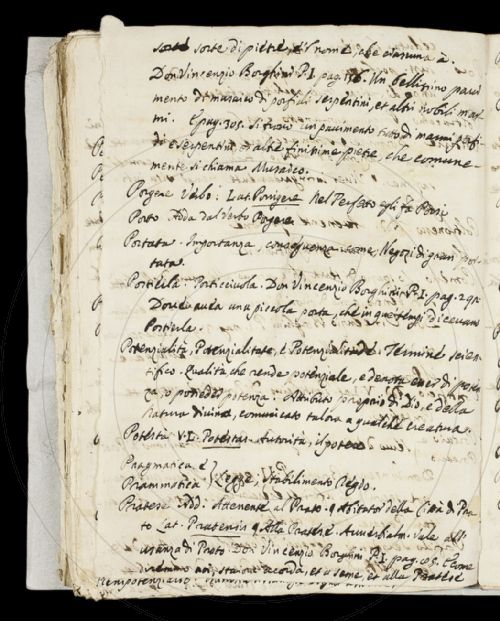 sorte sorte di pietre, e 'l nome, che ciascuna à.
Don Vincenzio Borghini P. I. pag. 156. Un bellissimo pavi
mento di musaico di porfidi serpentini, et altri nobili mar-
mi. E pag. 305. si trovò un pavimento tutto di marmi porfi
di e serpentini e altre finissime pietre, che comune-
mente si chiama Musaico.
Porgere Verbo: Lat. Porrigere Nel Perfetto egli fa Porsi
Porto Add. dal Verbo Porgere
Portata. Importanza, conseguenza come, Negozi di gran por-
tata.
Porticila. Porticciuola. Don Vincenzio Borghini P. I. pag. 291.
Dove aveva una piccola porta, che in quei tempi dicevano
Porticila.
Potenzialità, Potenzialitate, e Potenzialitade. Termine scien-
tifico. Qualità che rende potenziale, e denota esser di poten
za, o posseder potenza. Attributo proprio di Dio, e della
natura divina, comunicato talora a qualche creatura.
Potestà V. L. Potestas. Autorità, il potere
Pragmatica e
Prammatica Legge, Stabilimento Regio.
Pratese Add: Attenente al Prato. q abitator della Città di Pra-
to Lat. Pratensis q Alla Pratese Avverbialm. vale all'
usanza di Prato. Don Vincenzio Borghini P. I. pag. 05. Come
diremmo noi, staiora a corda, et a seme, et alla Pratese